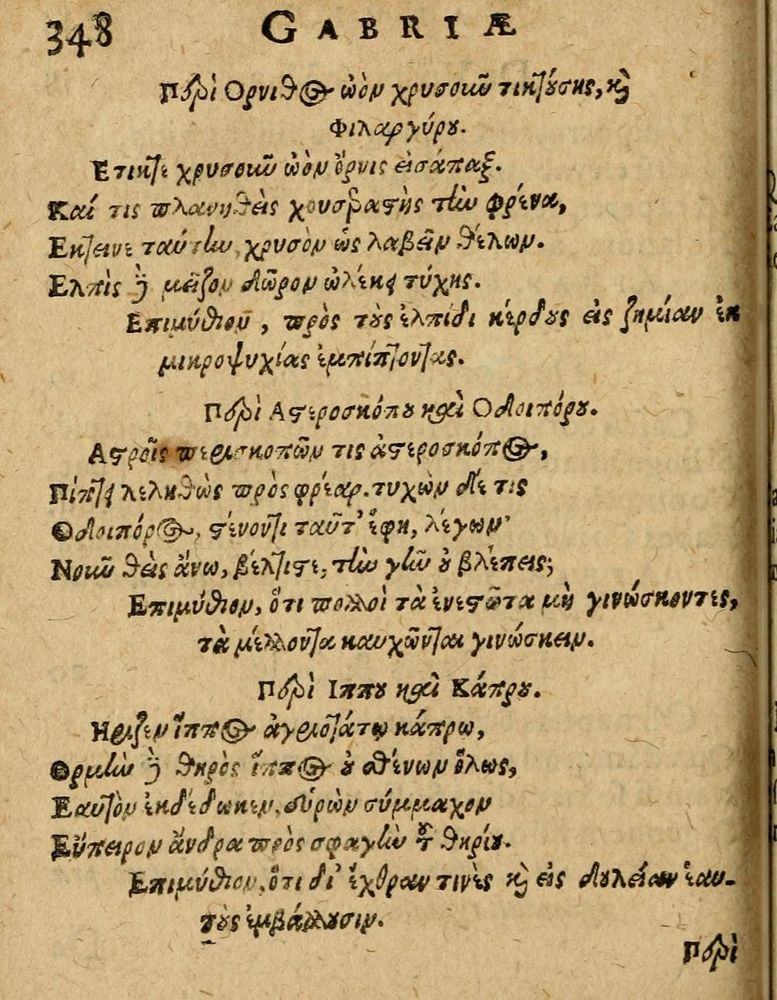 348 GABRIÆ
Περὶ Ορνιθος ὠὸν χρυσοῦν τικτούσης, καὶ
Φιλαργύρου.
Ετικτε χρυσοῦν ὠὸν ὄρνις εἰσάπαξ.
Καί τις πλανηθεὶς χρυσεραστὴς τὴν φρένα,
Εκτεινε ταύτην, χρυσὸν ὡς λαβεῖν θέλων.
Ελπὶς δὲ μεῖζον δῶρον ὠλέκει τύχης.
Επιμύθιον, πρὸς τοὺς ἐλπίδι κέρδους εἰς ζημίαν ἐκ
μικροψυχίας ἐμπίπτοντας.
Περὶ Αστεροσκόπου καὶ Οδοιπόρου.
Αστροῖς περισκοπῶν τις ἀστεροσκόπος,
Πίπτει λεληθὼς πρὸς φρέαρ. τυχὼν δέ τις
Οδοιπόρος, στένοντι ταῦτ' ἔφη, λέγων·
Νοῦν θεὶς ἄνω, βέλτιστε, τὴν γῆν οὐ βλέπεις;
Επιμύθιον, ὅτι πολλοὶ τὰ ἐνεστῶτα μὴ γινώσκοντες,
τὰ μέλλοντα καυχῶνται γινώσκειν.
Περὶ Ιππου καὶ Κάπρου.
Ηριζεν ἵππος ἀγριοτάτῳ κάπρῳ,
Ορμὴν δὲ θηρὸς ἵππος οὐ σθένων ὅλως,
Εαυτὸν ἐκδέδωκεν, εὑρὼν σύμμαχον
Εὔπειρον ἄνδρα πρὸς σφαγὴν τοῦ θηρίου.
Επιμύθιον, ὅτι δι' ἔχθραν τινὲς καὶ εἰς δουλείαν ἑαυ-
τοὺς ἐμβάλλουσιν.
Περὶ